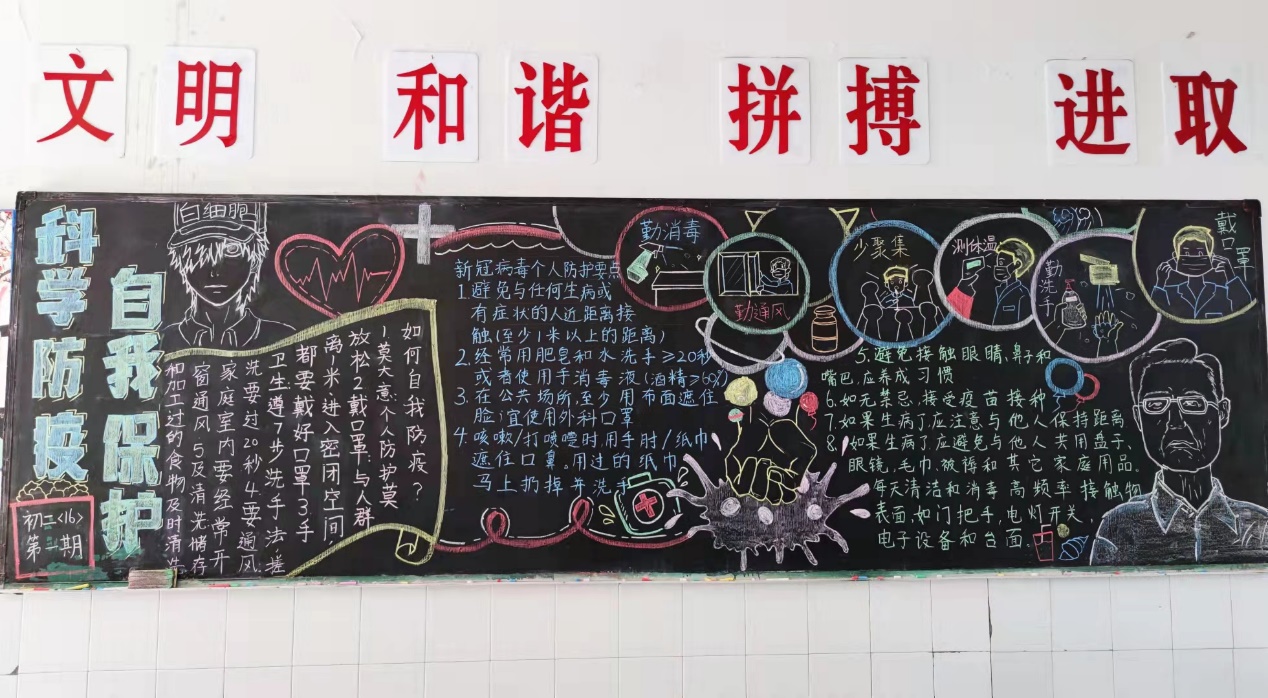 文明 和谐 拼搏 进取
科学防疫
自我保护
初二<16>
白细胞
如何自我防疫?
1莫大意个人防护莫
放松2戴口罩与人群
离米进入密闭空间
都要戴好口罩3手
卫生遵7步洗手法搓
洗要过20秒4要通风
家庭室内要经常开
窗通风5及清洗储存
和加工过的食物及时清洗
新冠病毒个人防护要点
1.避免与任何生病或
有症状的人近距离接
触(至少1米以上的距离)
2.经常用肥皂和水洗手≥20秒
或者使用手消毒液(酒精≥60%)
3.在公共场所,至少用布面遮住
脸;宜使用外科口罩
4.咳嗽/打喷嚏时用手肘/纸巾
遮住口鼻。用过的纸巾
马上扔掉并洗手
勤消毒
勤通风
少聚集
测体温
勤洗手
戴口罩
5.避免接触眼睛、鼻子和
嘴巴,应养成习惯
6.如无禁忌、接受疫苗接种
7.如果生病了应注意与他人保持距离
8.如果生病了应避免与他人共用盘子、
眼镜,毛巾,被褥和其它家庭用品。
每天清洁和消毒高频率接触物
表面,如门把手,电灯开关、
电子设备和台面。